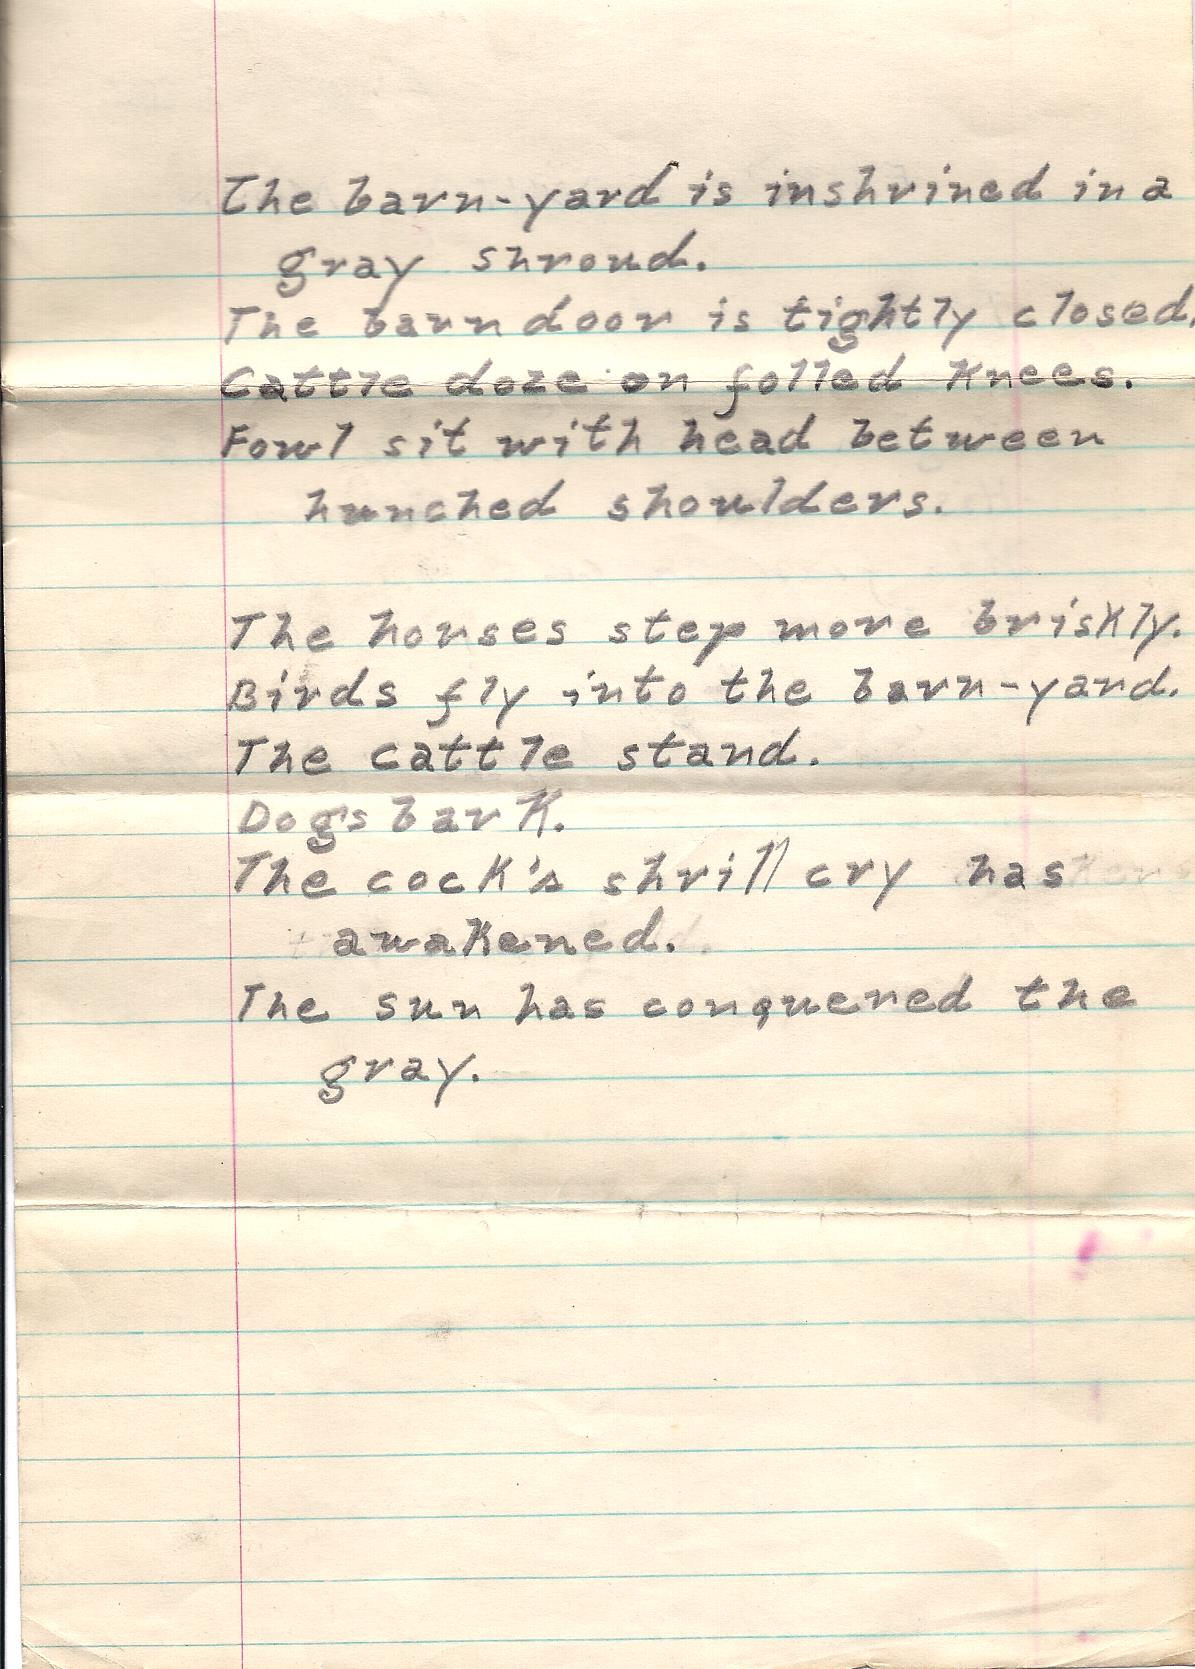 The barn-yard is inshrined in a
gray shroud.
The barn door is tightly closed,
Cattle doze on folled knees.
Fowl sit with head between
hunched shoulders.
The horses step more briskly.
Birds fly into the barn-yard.
The cattle stand.
Dogs bark.
The cock's shrill cry has
awakened.
The sun has conquered the
gray.